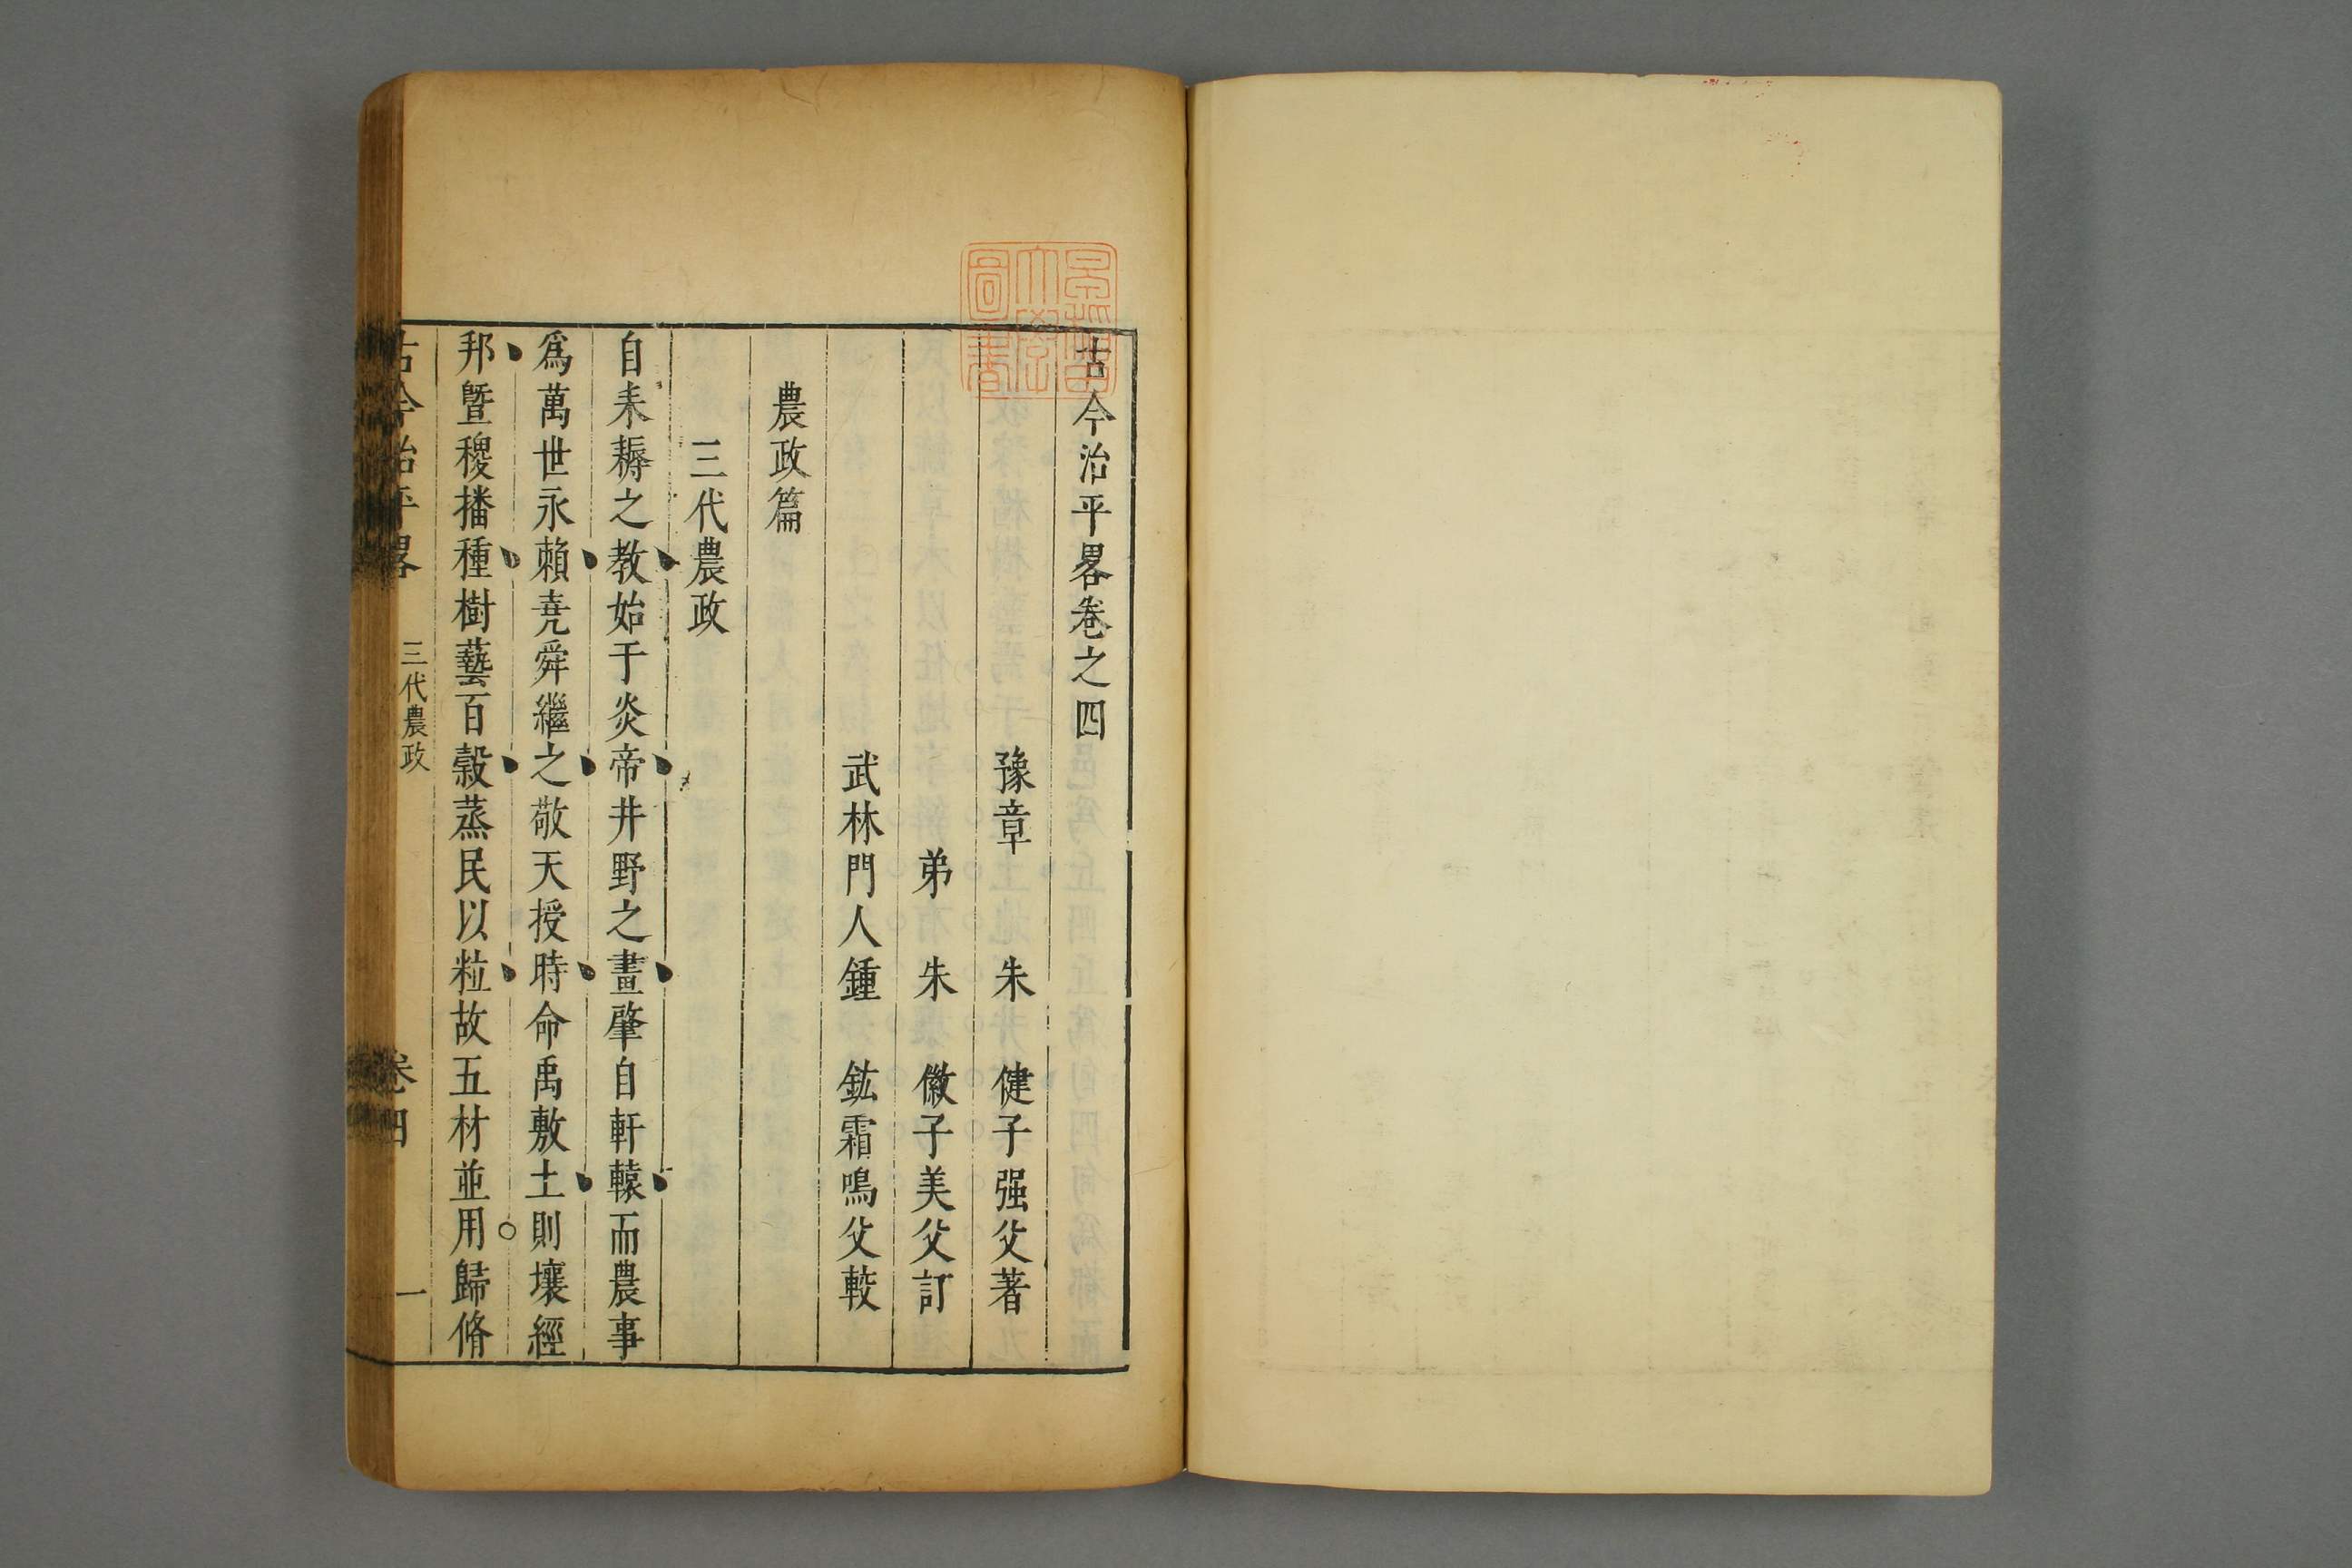 古今治平畧卷之四
豫章 朱 健子强父著
弟 朱 徽子美父訂
武林門人鍾 鈜霜鳴父較
農政篇
三代農政
自耒耨之教始于炎帝井野之畫肇自軒轅而農事
爲萬世永賴堯舜繼之敬天授時命禹敷土則壤經
邦曁稷播種樹藝百穀蒸民以粒故五材並用歸脩
古今治平畧 三代農政 卷四 一